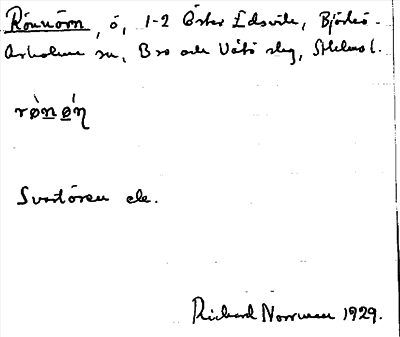 Rönnörn, ö, 1-2 Öster Edsvik, Björkö-
Arholma sn, Bro och Vätö slg, Sthlms l.
rø̀nǿη
Svartören ek.
Richard Norrman 1929.